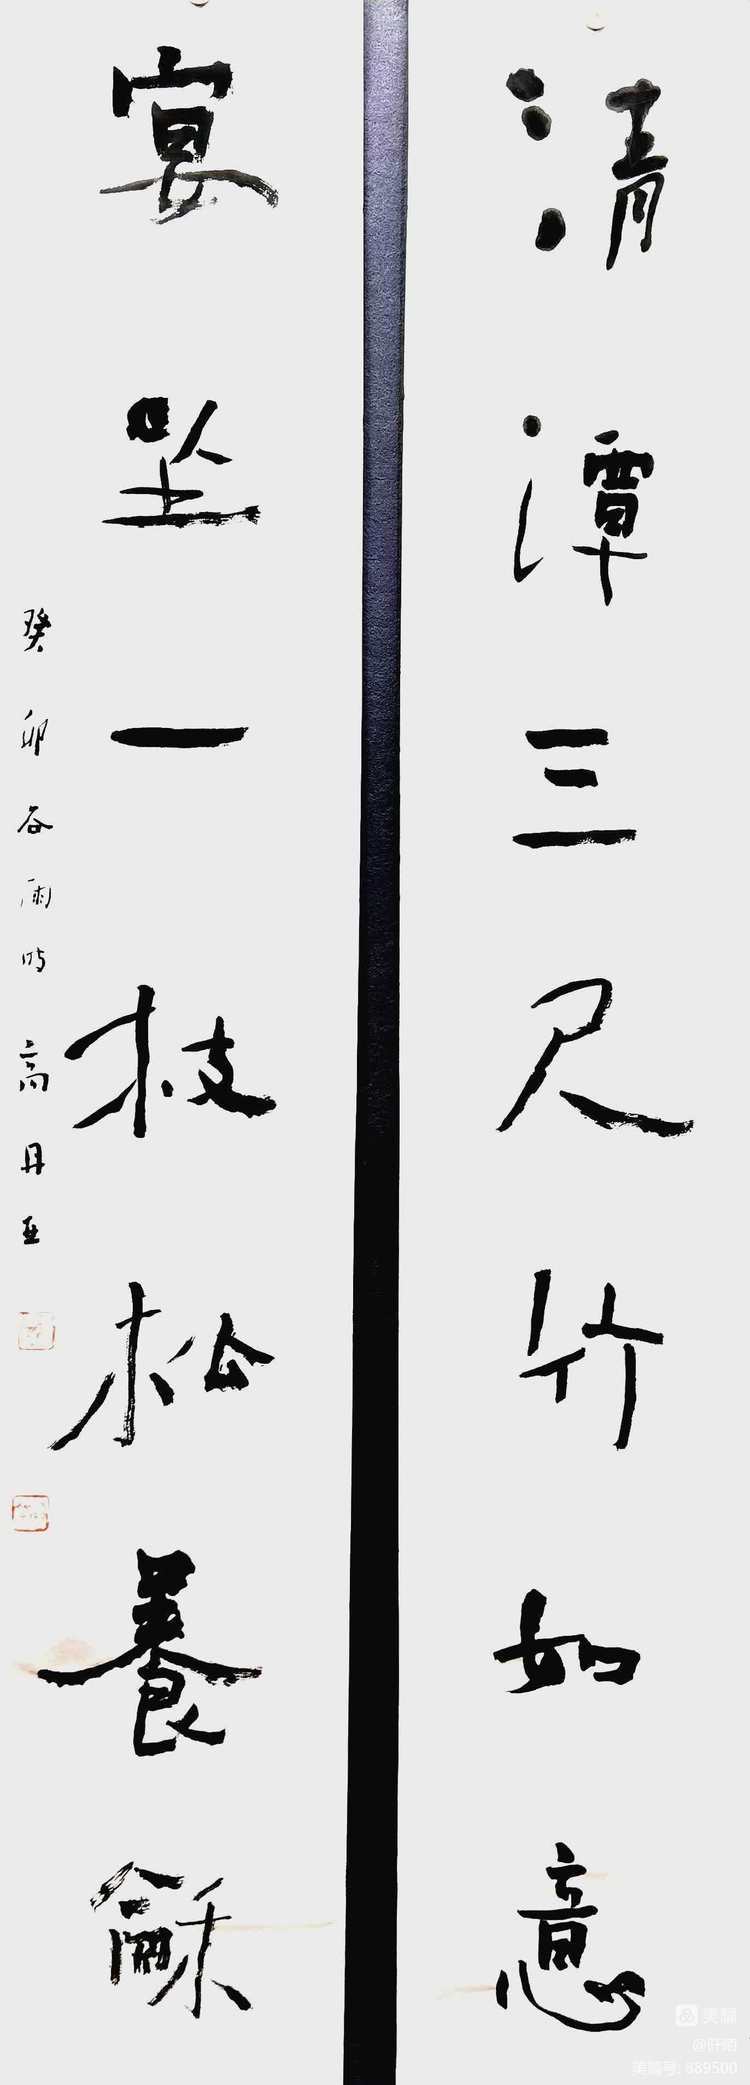 清潭三尺竹如意
宴坐一枝松養龢
癸卯谷雨时高丹亚
美篇
@阡陌
美篇号:889500